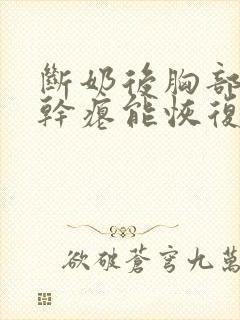 斷奶後胸部
幹癟能恢復
欲破蒼穹九萬